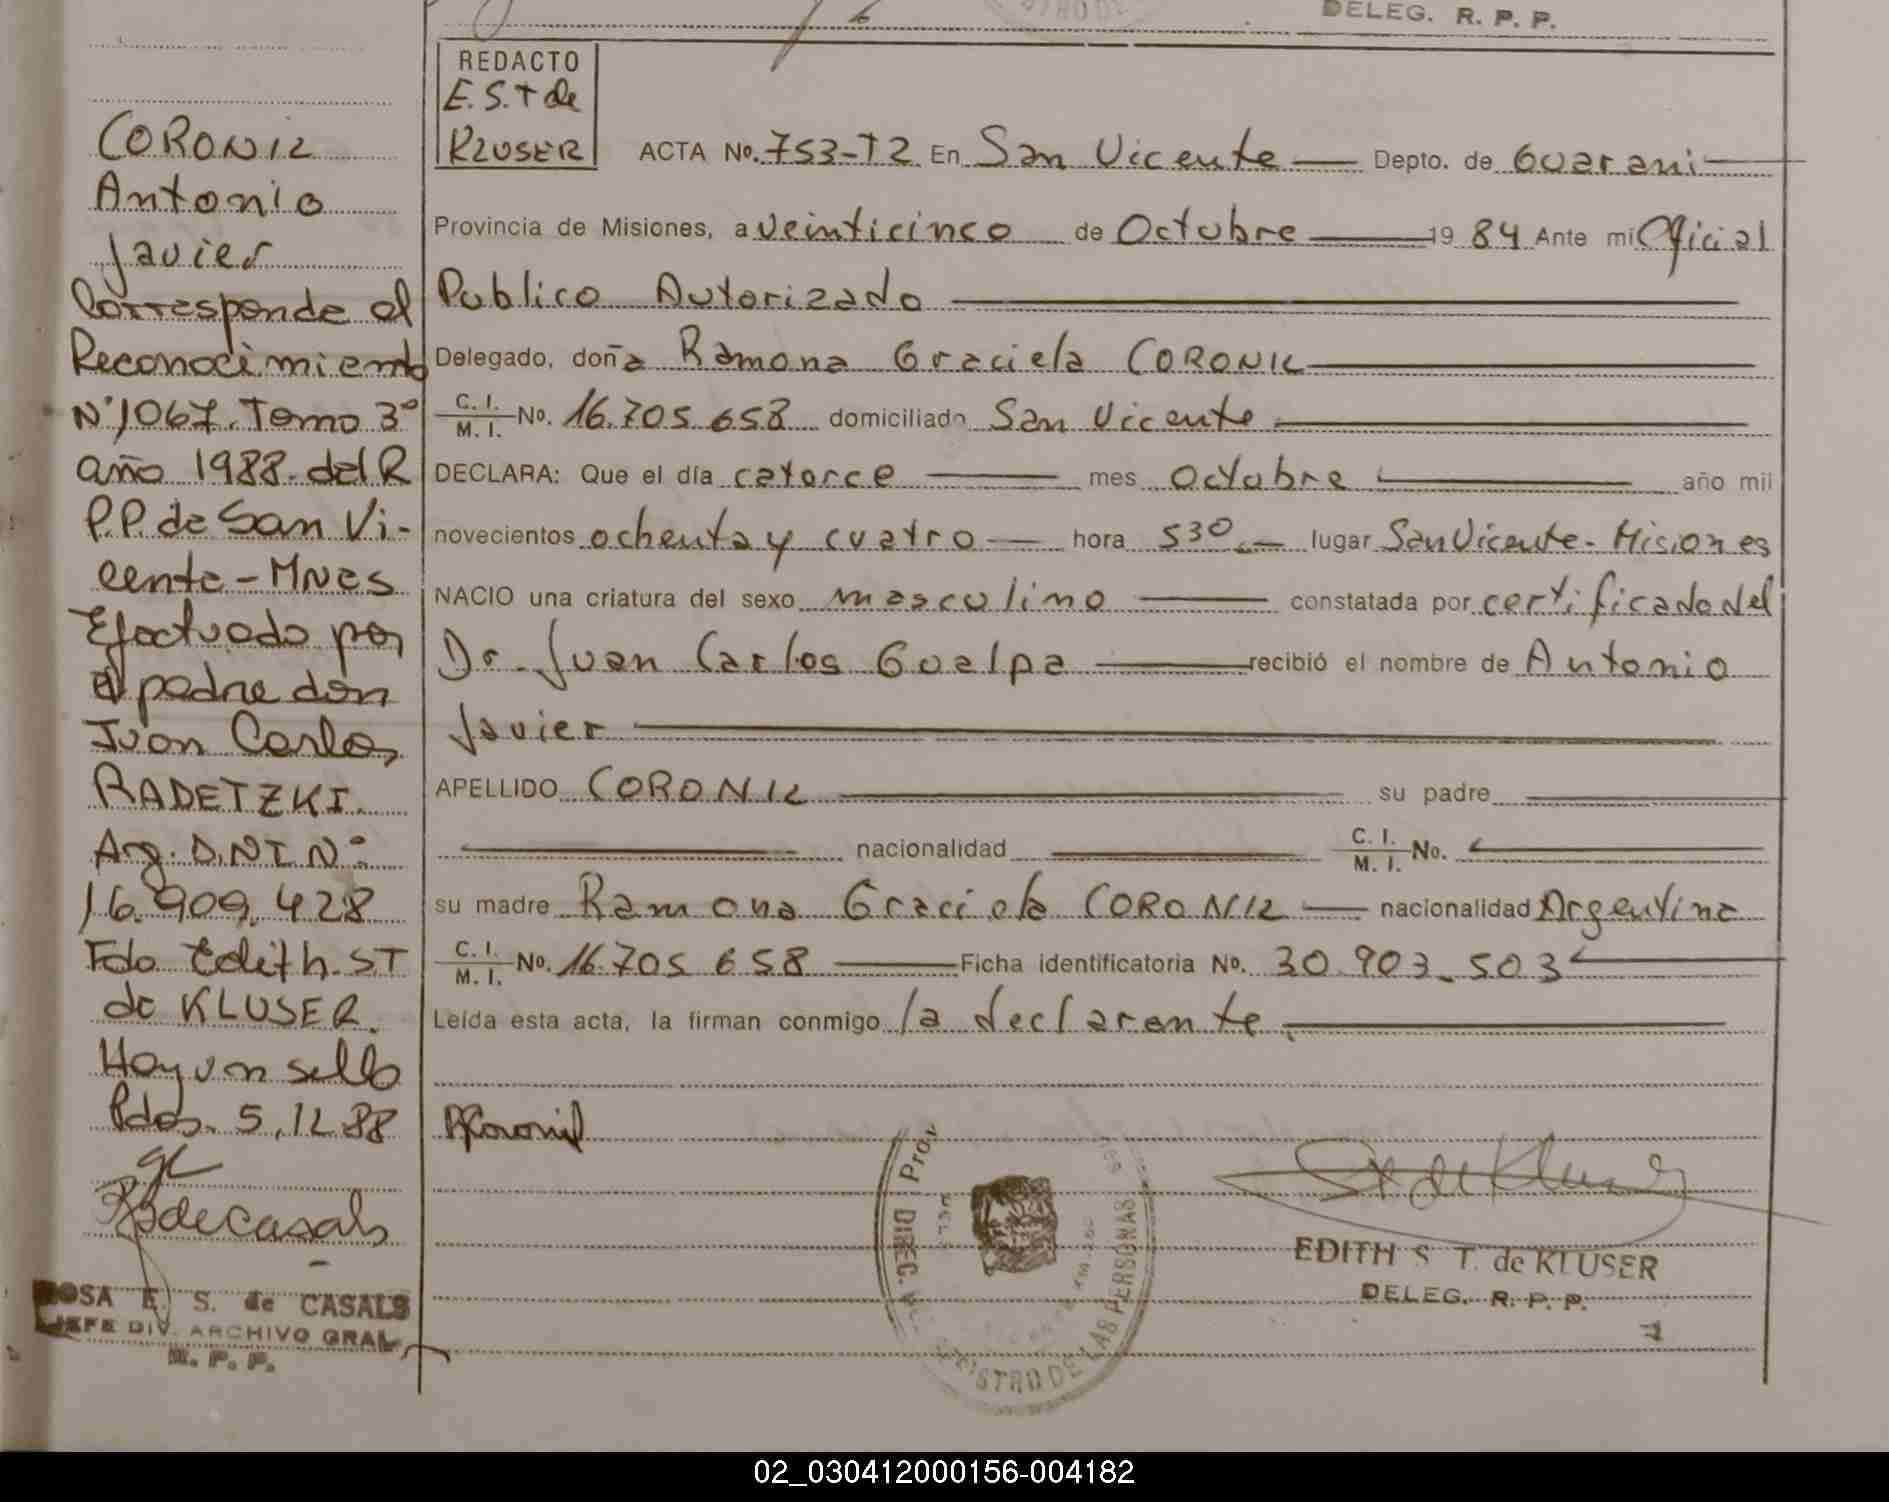 DELEG. R. P. P.
CORONIL
Antonio
Javier
Corresponde al
Reconocimiento
Nº 1067. Tomo 3º
año 1988. del R
P.P. de San Vi-
cente - Mnes
Efectuado por
el padre don
Juan Carlos
RADETZKI.
Arg. D.N.I Nº
16.909.428
Fdo Edith. S T
de KLUSER.
Hay un sello
Pdas. 5.12.88
RSdeCasals
ROSA E. S. de CASALS
JEFE DIV. ARCHIVO GRAL
R. P. P.
REDACTO
E. S. T de
KLUSER
ACTA No. 753-T2 En San Vicente Depto. de Guarani
Provincia de Misiones, a veinticinco de Octubre 19 84 Ante mi Oficial
Publico Autorizado
Delegado, doña Ramona Graciela CORONIL
C. I. M. I. No. 16.705.658 domiciliado San Vicente
DECLARA: Que el día catorce mes octubre año mil
novecientos ochenta y cuatro hora 530 lugar San Vicente - Misiones
NACIO una criatura del sexo masculino constatada por certificado del
Dr. Juan Carlos Gualpa recibió el nombre de Antonio
Javier
APELLIDO CORONIL su padre
nacionalidad C. I. M. I. No.
su madre Ramona Graciela CORONIL nacionalidad Argentina
C. I. M. I. No. 16.705 658 Ficha identificatoria No. 30.903.503
Leída esta acta, la firman conmigo la declarante.
RCoronil
DIREC. REGISTRO DE LAS PERSONAS
ST de Kluser
EDITH S T. de KLUSER
DELEG. R. P. P.
02_030412000156-004182